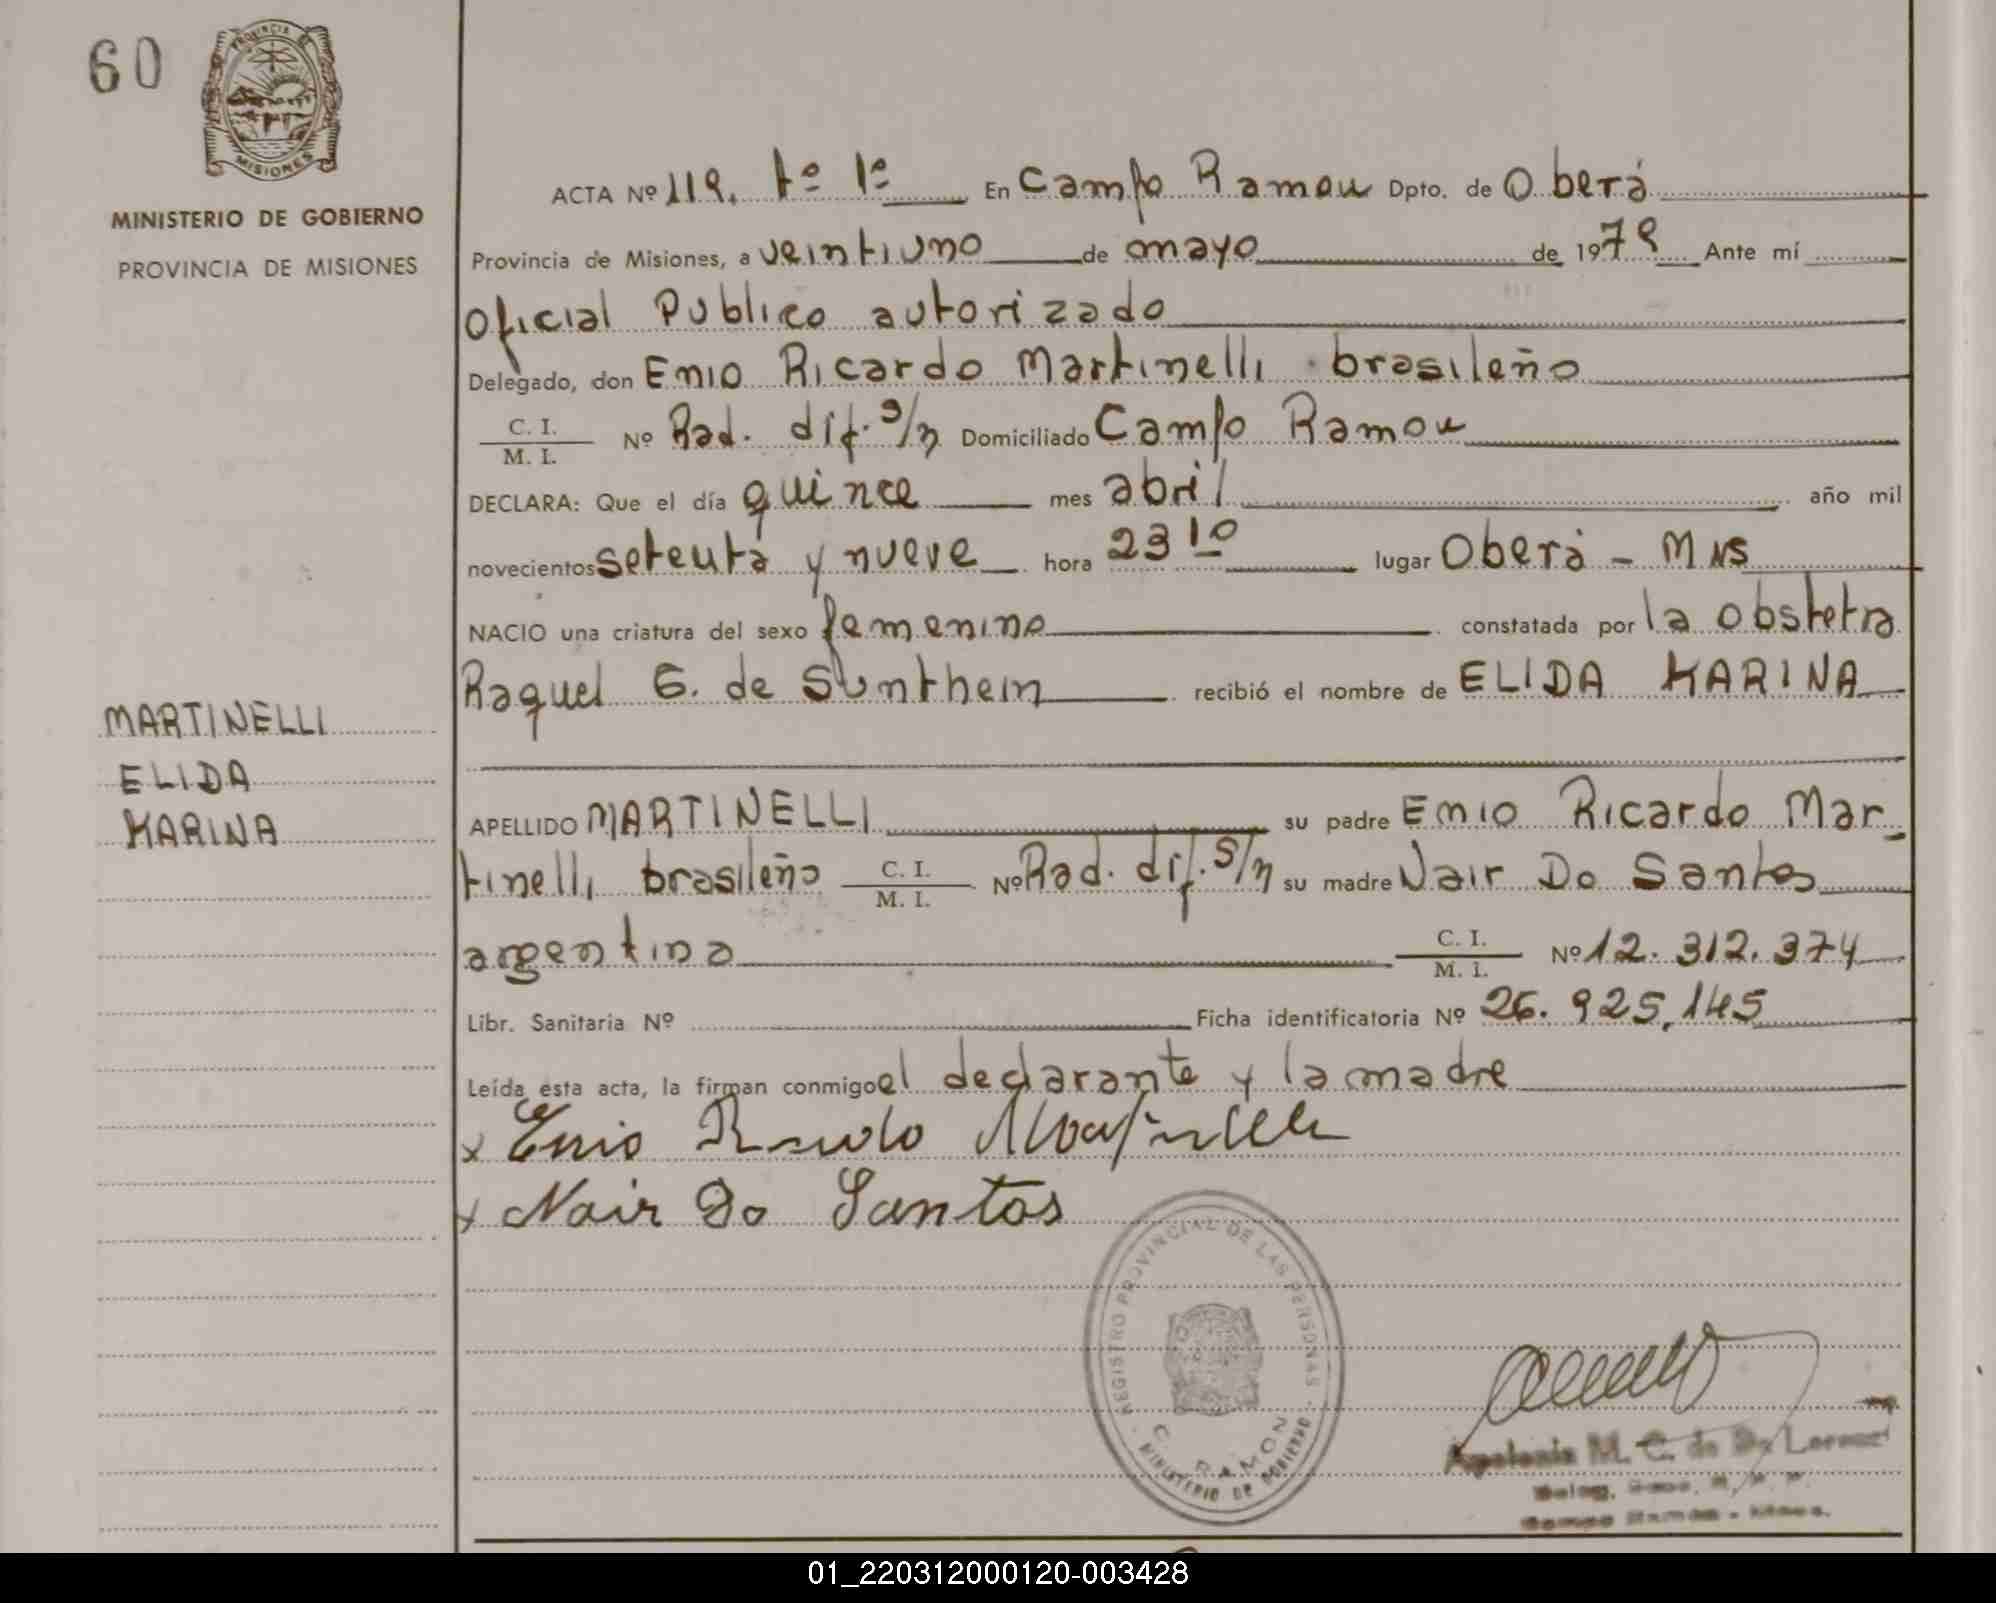 60
PROVINCIA DE
MISIONES
MINISTERIO DE GOBIERNO
PROVINCIA DE MISIONES
ACTA Nº 119. tº 1º En Campo Ramon Dpto. de Oberá
Provincia de Misiones, a veintiuno de mayo de 1979 Ante mí
Oficial Publico autorizado
Delegado, don Enio Ricardo Martinelli brasileño
C. I.
M. I. Nº Rad. dif. s/n Domiciliado Campo Ramon
DECLARA: Que el día quince mes abril año mil
novecientos setenta y nueve hora 23 10 lugar Oberá - Mns
NACIO una criatura del sexo femenino constatada por la obstetra
Raquel G. de Sunthein recibió el nombre de ELIDA KARINA
MARTINELLI
ELIDA
KARINA
APELLIDO MARTINELLI su padre Enio Ricardo Mar-
tinelli brasileño C. I. M. I. Nº Rad. dif. s/n su madre Nair Do Santos
argentina C. I. M. I. Nº 12.312.374
Libr. Sanitaria Nº Ficha identificatoria Nº 26.925,145
Leída esta acta, la firman conmigo el declarante y la madre
x Enio Ricardo Martinelli
x Nair Do Santos
REGISTRO PROVINCIAL DE LAS PERSONAS
C. RAMON
MINISTERIO DE GOBIERNO
Apolonia M. C. de De Lorenzi
01_220312000120-003428